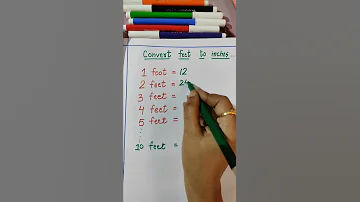 Convert feet to inches..
1 foot = 12
2 feet = 24
3 feet =
4 feet =
5 feet =
⋮
10 feet =